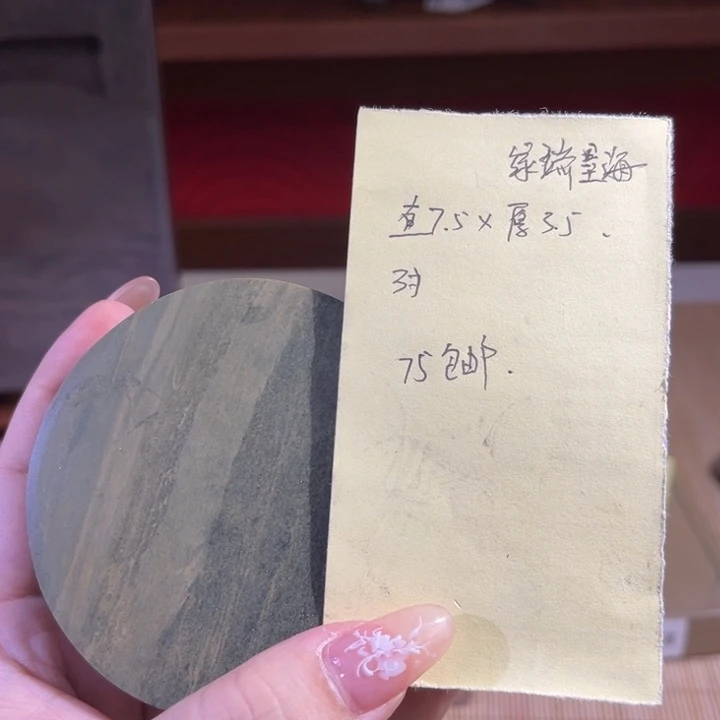 绿瑞墨海
直7.5×厚3.5.
3寸
75包邮.